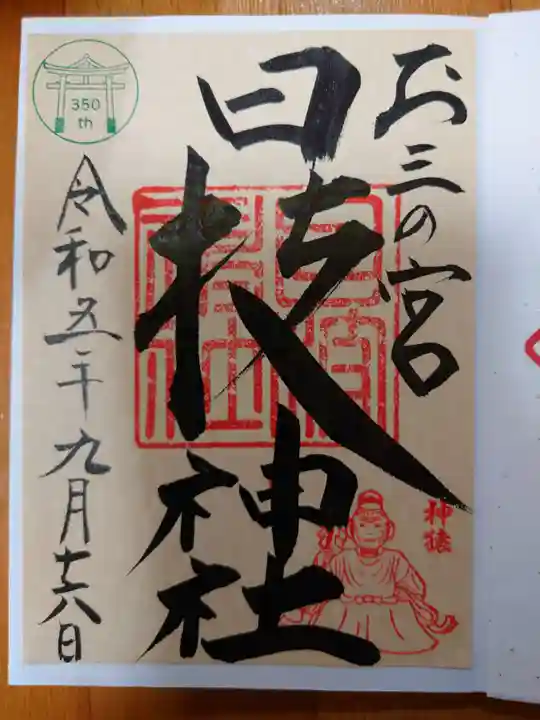 お三の宮
日枝神社
令和五年九月十六日
350
th
神猿